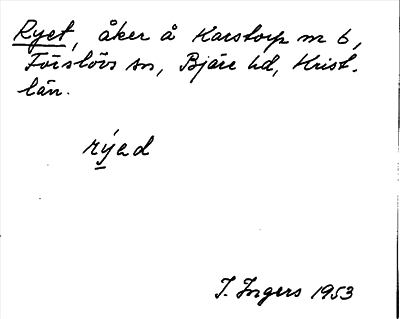 Ryet, åker å Karstorp nr 6,
Förslövs sn, Bjäre hd, Krist.
län.
rýed
I. Ingers 1953